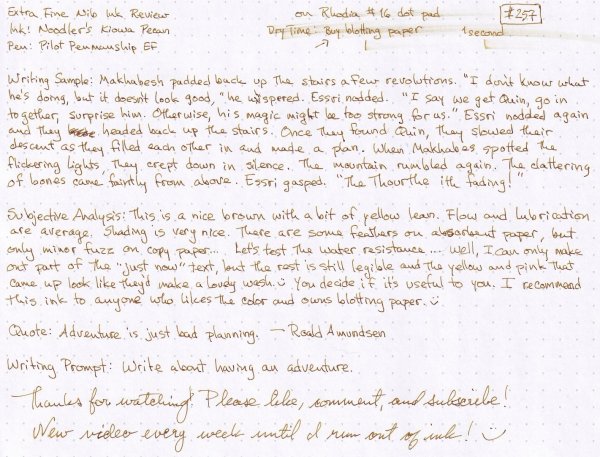 Extra Fine Nib Ink Review on Rhodia #16 dot pad #257
Ink: Noodler's Kiowa Pecan Dry Time: Buy blotting paper 1 second
Pen: Pilot Penmanship EF
Writing Sample: Makhabesh padded back up the stairs a few revolutions. "I don't know what
he's doing, but it doesn't look good," he whispered. Essri nodded. "I say we get Quin, go in
together, surprise him. Otherwise, his magic might be too strong for us." Essri nodded again
and they headed back up the stairs. Once they found Quin, they slowed their
descent as they filled each other in and made a plan. When Makhabes spotted the
flickering lights, they crept down in silence. The mountain rumbled again. The clattering
of bones came faintly from above. Essri gasped. "The Thourthe ith fading!"
Subjective Analysis: This is a nice brown with a bit of yellow lean. Flow and lubrication
are average. Shading is very nice. There are some feathers on absorbent paper, but
only minor fuzz on copy paper... Let's test the water resistance... Well, I can only make
out part of the "just now" text, but the rest is still legible and the yellow and pink that
came up look like they'd make a lovely wash. You decide if it's useful to you. I recommend
this ink to anyone who likes the color and owns blotting paper.
Quote: Adventure is just bad planning. — Roald Amundsen
Writing Prompt: Write about having an adventure.
Thanks for watching! Please like, comment, and subscribe!
New video every week until I run out of ink!